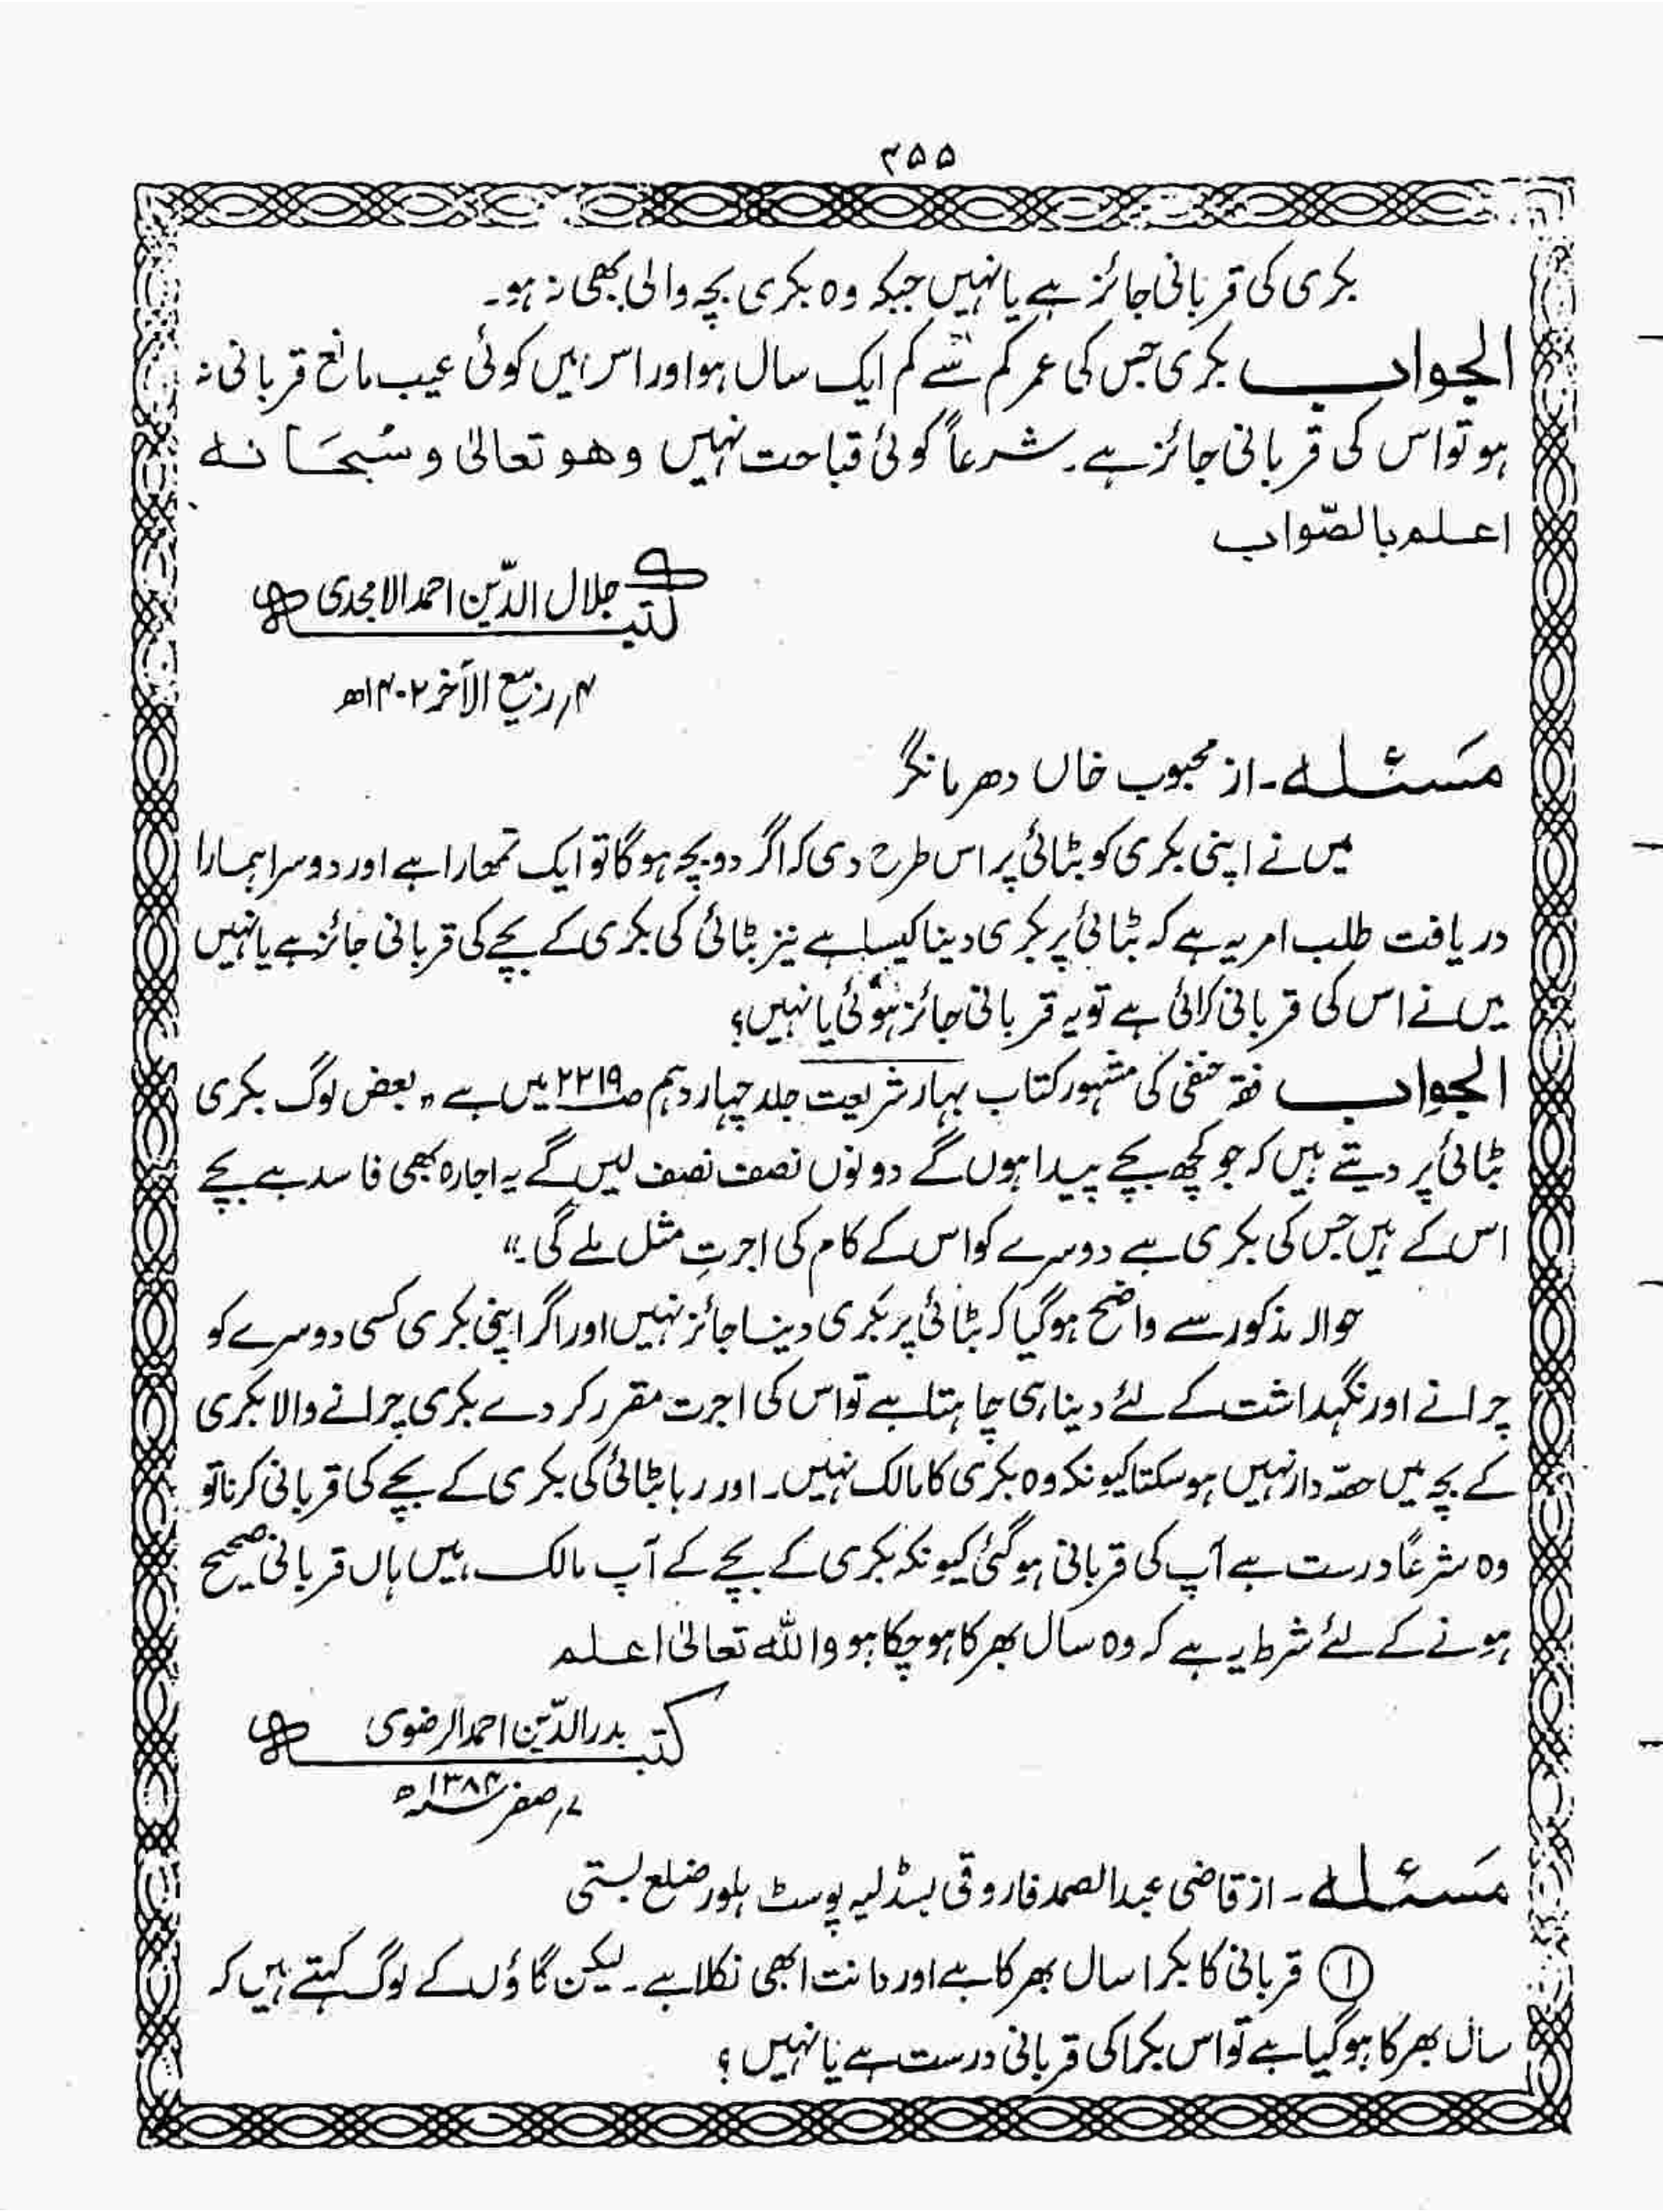 ۴۵۵
بکری کی قربانی جائز ہے یا نہیں جبکہ وہ بکری بچہ والی بھی نہ ہو۔
الجواب بکری جس کی عمر کم سے کم ایک سال ہو اور اس میں کوئی عیب مانع قربانی نہ
ہو تو اس کی قربانی جائز ہے۔ شرعاً کوئی قباحت نہیں وھو تعالیٰ و سُبحَانہ
اعلم بالصّواب
کتبہ جلال الدّین احمد الامجدی
۴؍ ربیع الآخر ۱۴۰۲ھ
مَسئلہ۔ از محبوب خاں دھرمانگر
میں نے اپنی بکری کو بٹائی پر اس طرح دی کہ اگر دو بچہ ہوگا تو ایک تمھارا ہے اور دوسرا ہمارا
دریافت طلب امر یہ ہے کہ بٹائی پر بکری دینا کیسا ہے نیز بٹائی کی بکری کے بچے کی قربانی جائز ہے یا نہیں
میں نے اس کی قربانی کرائی ہے تو یہ قربانی جائز ہوئی یا نہیں؟
الجواب فقہ حنفی کی مشہور کتاب بہار شریعت جلد چہار دہم صـ۲۲۱۹ میں ہے " بعض لوگ بکری
بٹائی پر دیتے ہیں کہ جو کچھ بچے پیدا ہوں گے دونوں نصف نصف لیں گے یہ اجارہ بھی فاسد ہے بچے
اس کے ہیں جس کی بکری ہے دوسرے کو اس کے کام کی اجرتِ مثل ملے گی۔"
حوالہ مذکور سے واضح ہوگیا کہ بٹائی پر بکری دینا جائز نہیں اور اگر اپنی بکری کسی دوسرے کو
چرانے اور نگہداشت کے لئے دینا ہی چاہتا ہے تو اس کی اجرت مقرر کر دے بکری چرانے والا بکری
کے بچہ میں حصّہ دار نہیں ہو سکتا کیونکہ وہ بکری کا مالک نہیں۔ اور رہا بٹائی کی بکری کے بچے کی قربانی کرنا تو
وہ شرعًا درست ہے آپ کی قربانی ہوگئی کیونکہ بکری کے بچے کے آپ مالک ہیں ہاں قربانی صحیح
ہونے کے لئے شرط یہ ہے کہ وہ سال بھر کا ہو چکا ہو واللہ تعالیٰ اعلم
کتبہ بدر الدّین احمد الرضوی
۷؍ صفر ۱۳۸۴ھ
مَسئلہ۔ از قاضی عبدالصمد فاروقی پوسٹ ضلع بستی
① قربانی کا بکرا سال بھر کا ہے اور دانت ابھی نکلا ہے۔ لیکن گاؤں کے لوگ کہتے ہیں کہ
سال بھر کا ہوگیا ہے تو اس بکرا کی قربانی درست ہے یا نہیں ؟